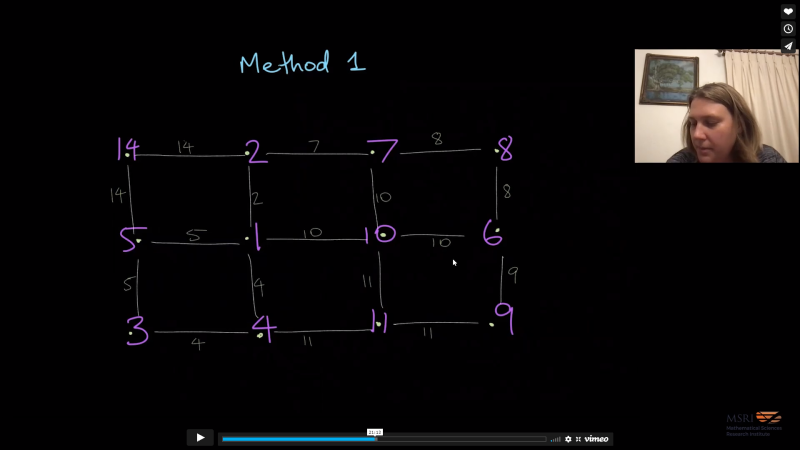 Method 1
14 14 2 7 7 8 8
14 2 10 8
5 5 1 10 10 10 6
5 4 11 9
3 4 4 11 11 11 9
MSRI
Mathematical Sciences
Research Institute
21:12
vimeo